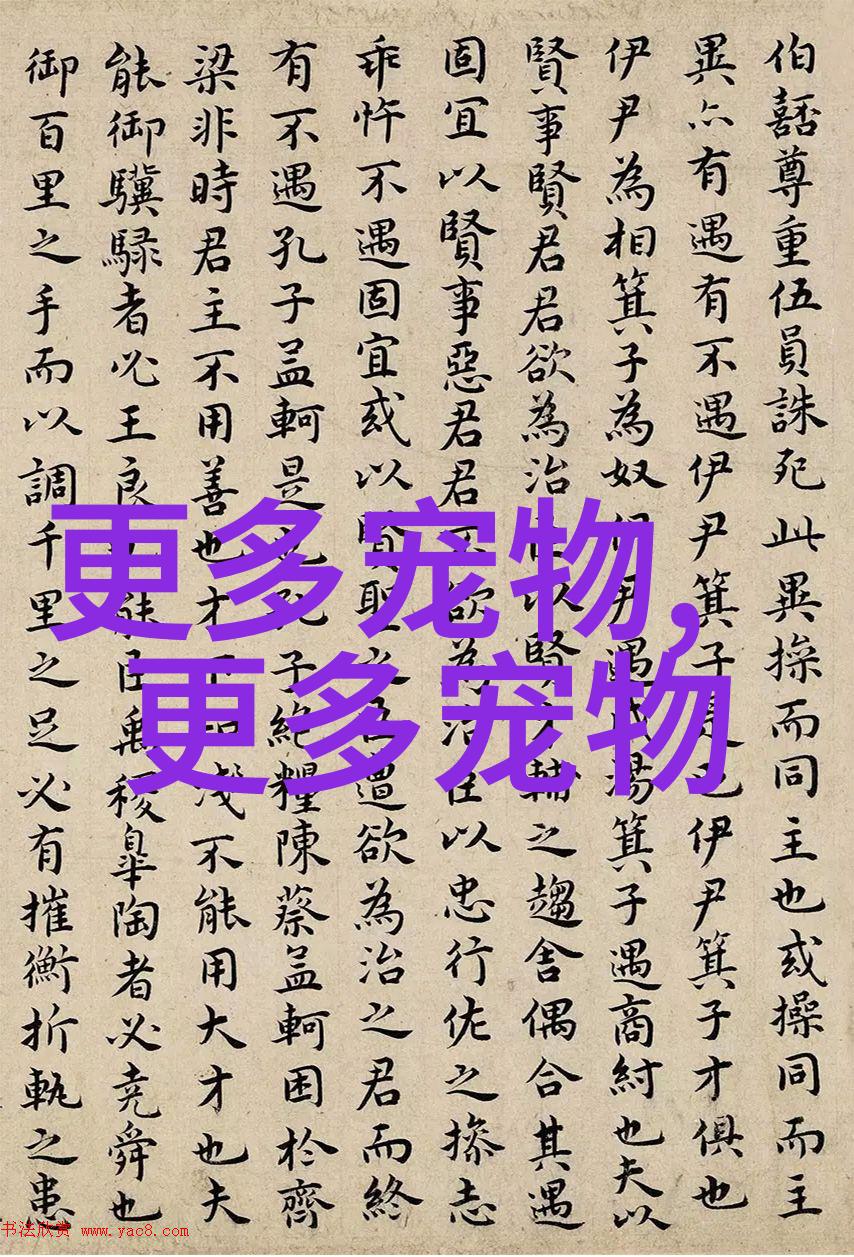 伯嚭尊重伍員誅死此異操而同主也或操同而主
異亦有遇有不遇伊尹箕子是也伊尹箕子才俱也
伊尹為相箕子為奴伊尹遇成湯箕子遇商紂也夫以
賢事賢君君欲為治臣以賢才輔之趨舍偶合其遇
固宜以賢事惡君君不欲為治臣以忠行佐之操志
乖忤不遇固宜或以賢聖之臣遭欲為治之君而終
有不遇孔子孟軻是也孔子絕糧陳蔡孟軻困於齊
梁非時君主不用善也才下知淺不能用大才也夫
能御驥騄者必王良也能臣禹稷皋陶者必堯舜也
御百里之手而以調千里之足必有摧衡折軛之患
更多宠物,
更多宠物
书法欣赏 www.yac8.com